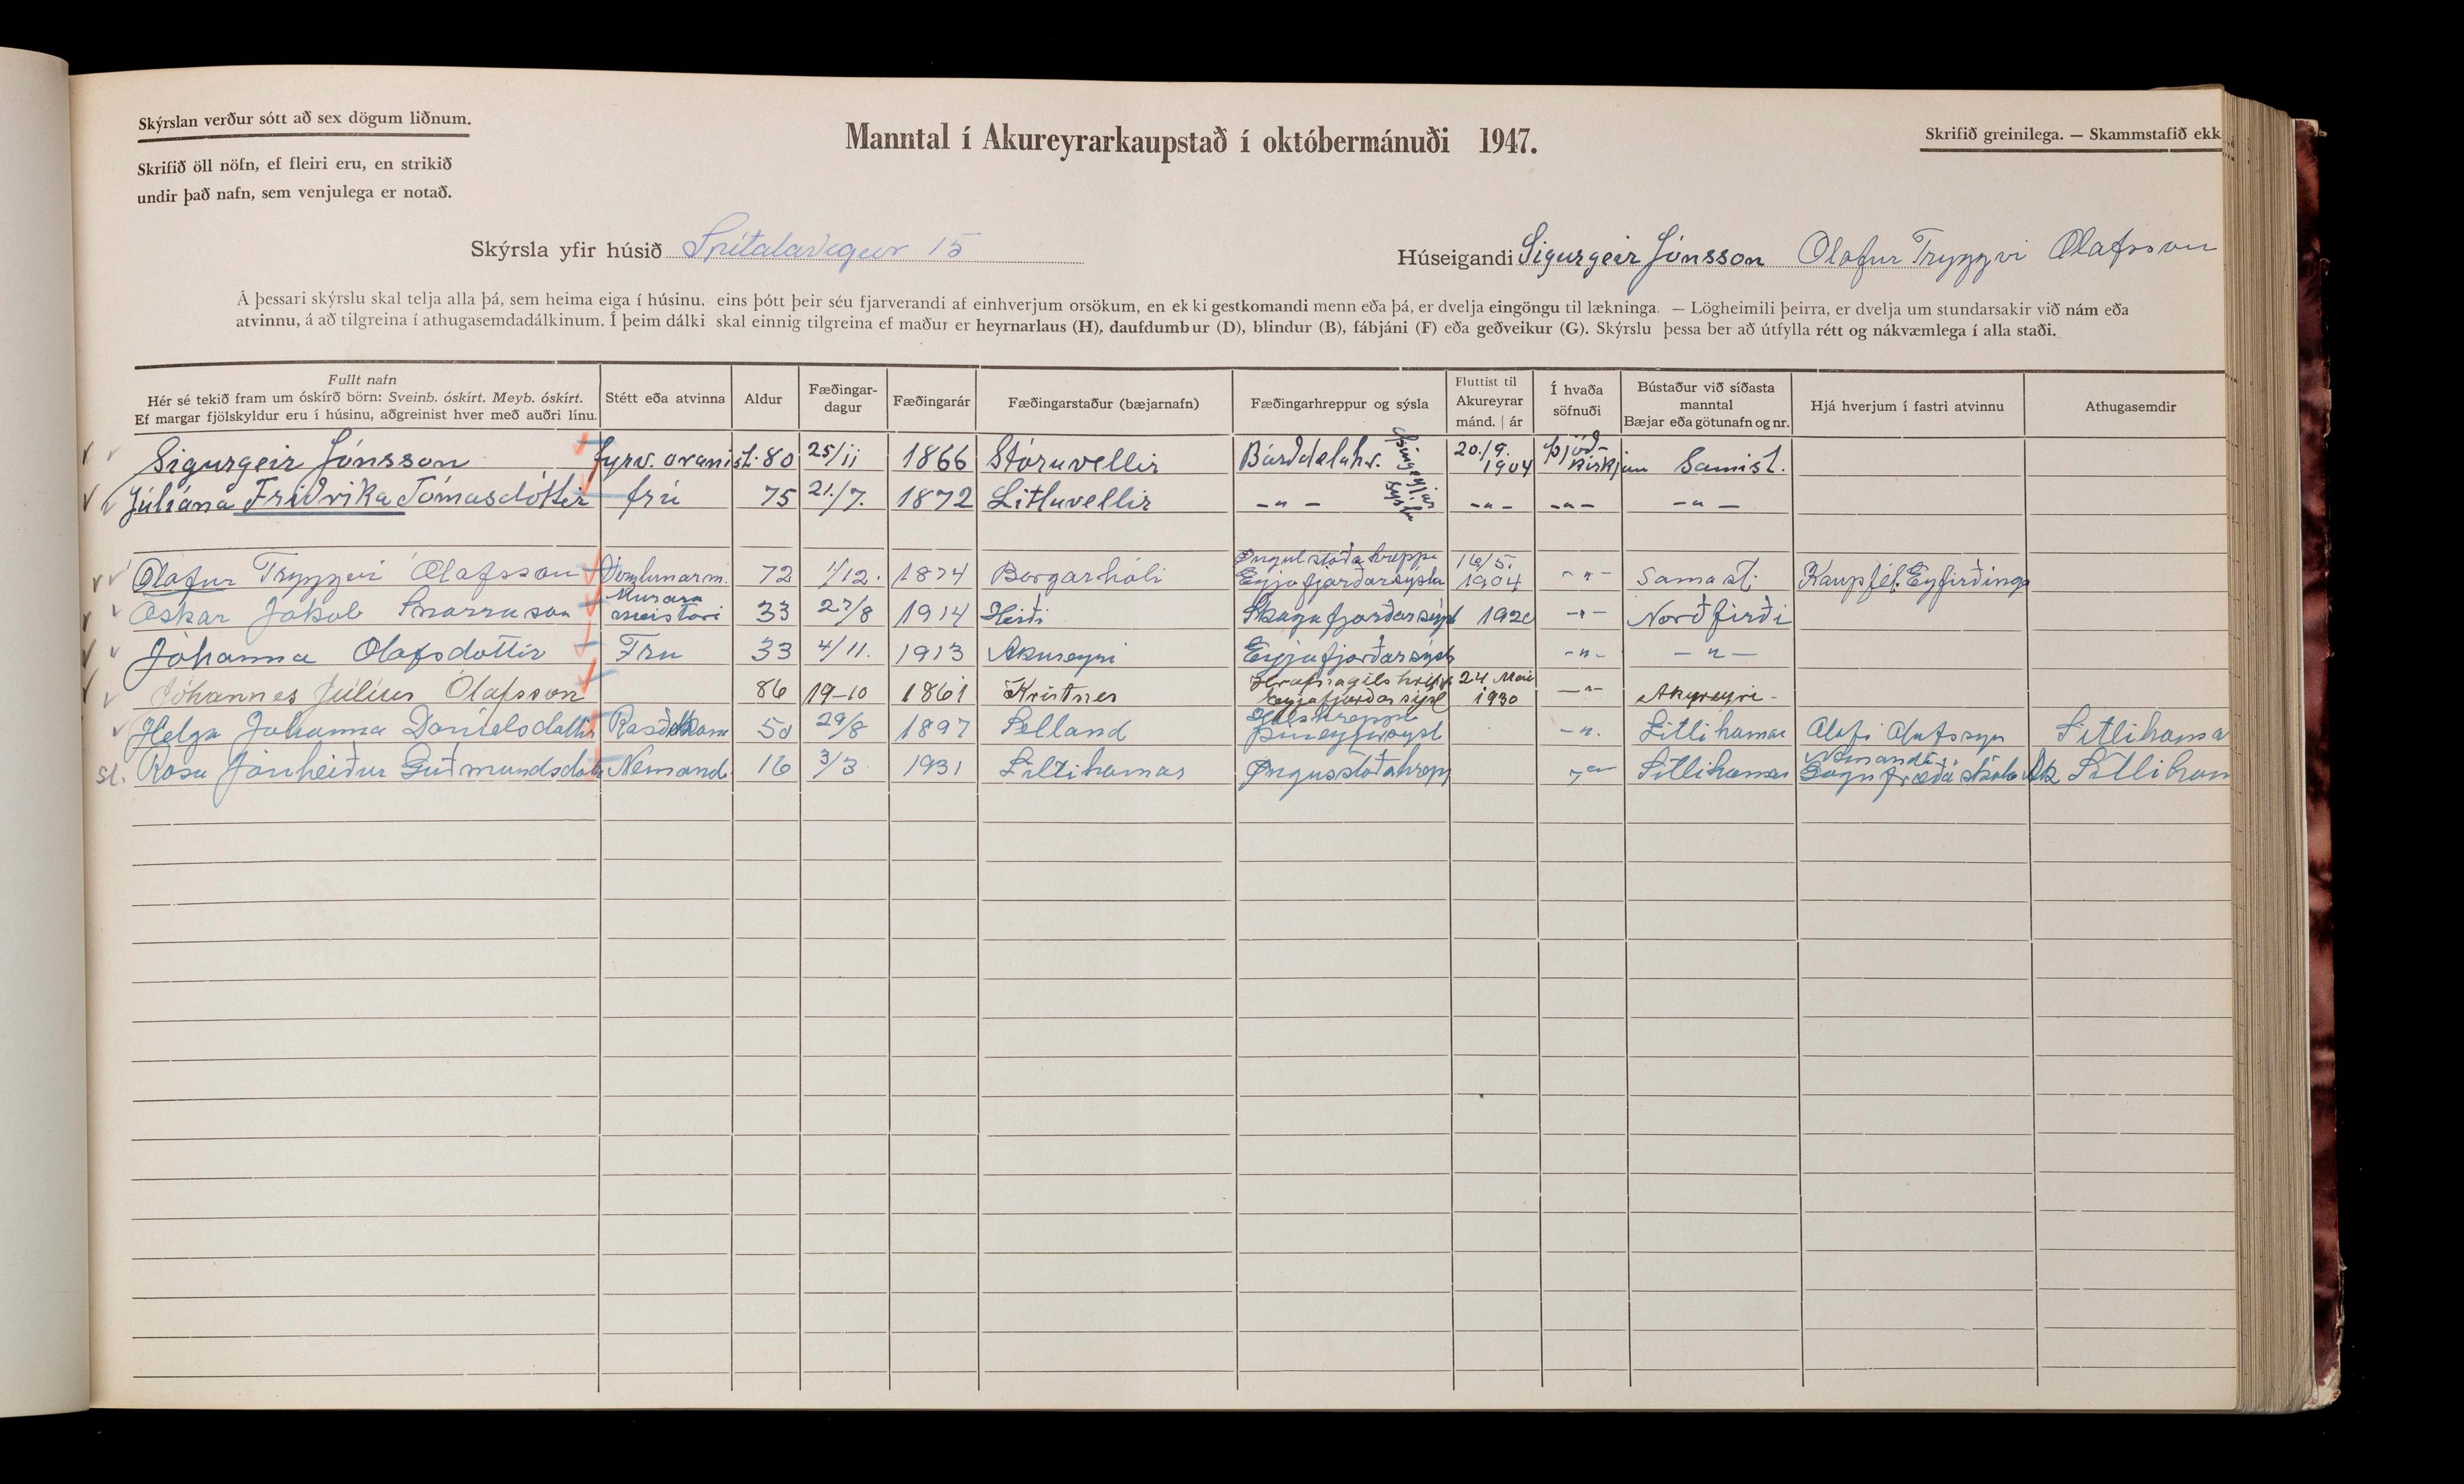 Skýrslan verður sótt að sex dögum liðnum.
Skrifið öll nöfn, ef fleiri eru, en strikið
undir það nafn, sem venjulega er notað.
Manntal í Akureyrarkaupstað í októbermánuði 1947.
Skrifið greinilega. — Skammstafið ekk
Skýrsla yfir húsið Spítalavegur 15
Húseigandi Sigurgeir Jónsson Olafur Tryggvi Olafsson
Á þessari skýrslu skal telja alla þá, sem heima eiga í húsinu, eins þótt þeir séu fjarverandi af einhverjum orsökum, en ekki gestkomandi menn eða þá, er dvelja eingöngu til lækninga. — Lögheimili þeirra, er dvelja um stundarsakir við nám eða
atvinnu, á að tilgreina í athugasemdadálkinum. Í þeim dálki skal einnig tilgreina ef maður er heyrnarlaus (H), daufdumbur (D), blindur (B), fábjáni (F) eða geðveikur (G). Skýrslu þessa ber að útfylla rétt og nákvæmlega í alla staði.
Fullt nafn
Hér sé tekið fram um óskírð börn: Sveinb. óskírt. Meyb. óskírt.
Ef margar fjölskyldur eru í húsinu, aðgreinist hver með auðri línu.
Stétt eða atvinna
Aldur
Fæðingar-
dagur
Fæðingarár
Fæðingarstaður (bæjarnafn)
Fæðingarhreppur og sýsla
Fluttist til
Akureyrar
mánd. | ár
Í hvaða
söfnuði
Bústaður við síðasta
manntal
Bæjar eða götunafn og nr.
Hjá hverjum í fastri atvinnu
Athugasemdir
Sigurgeir Jónsson fyrv. organist. 80 25/11 1866 Stóruvellir Bárðdælahr. Þingeyjar sýslu 20./9. 1904 Þjóð-kirkjun Samast.
Júlíana Friðrika Tómasdóttir frú 75 21./7. 1872 Litluvellir -"- -"- -"- -"-
Olafur Tryggvi Olafsson Verzlunarm. 72 1/12. 1874 Borgarhóli Öngulstaðahreppi Eyjafjarðarsýsla 16/5. 1904 -"- Samast. Kaupfél. Eyfirðinga
Oskar Jakob Snorrason Murarameistari 33 27/8 1914 Heiði Skagafjarðarsýsl 1920 -"- Norðfirði
Jóhanna Olafsdottir Fru 33 4/11. 1913 Akureyri Eyjafjarðarsýsl -"- -"-
Jóhannes Júlíus Ólafsson 86 19-10 1861 Kristnes Hrafnagilshrepp Eyjafjarðarsýsl 24 Mai 1930 -"- Akureyri-
Helga Johanna Daníelsdottir Raðskona 50 29/8 1897 Selland Hálshreppi Þineyjarsýsl -"- Litlihamar Olafi Olafssyni Litlihama
st. Rosa Jónheiður Guðmundsdott Nemand. 16 3/3 1931 Litlihamar Öngusstaðahrepp -"- Litlihamar Nemandi Gagnfræðaskola Ak Litliham